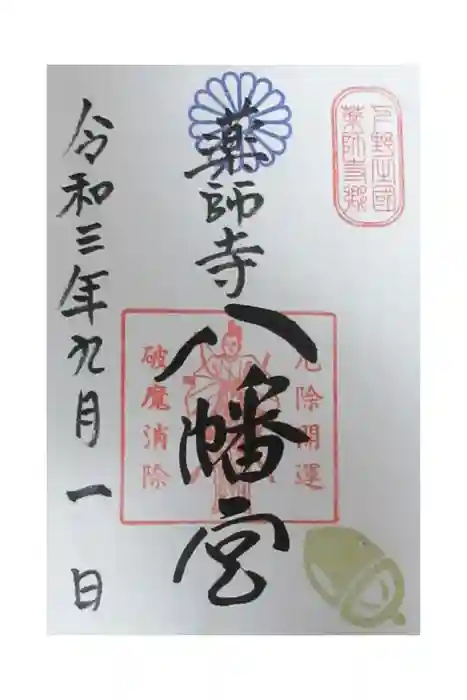 下野之國
薬師寺郷
薬師寺
八幡宮
厄除開運
破魔消除
令和三年九月一日